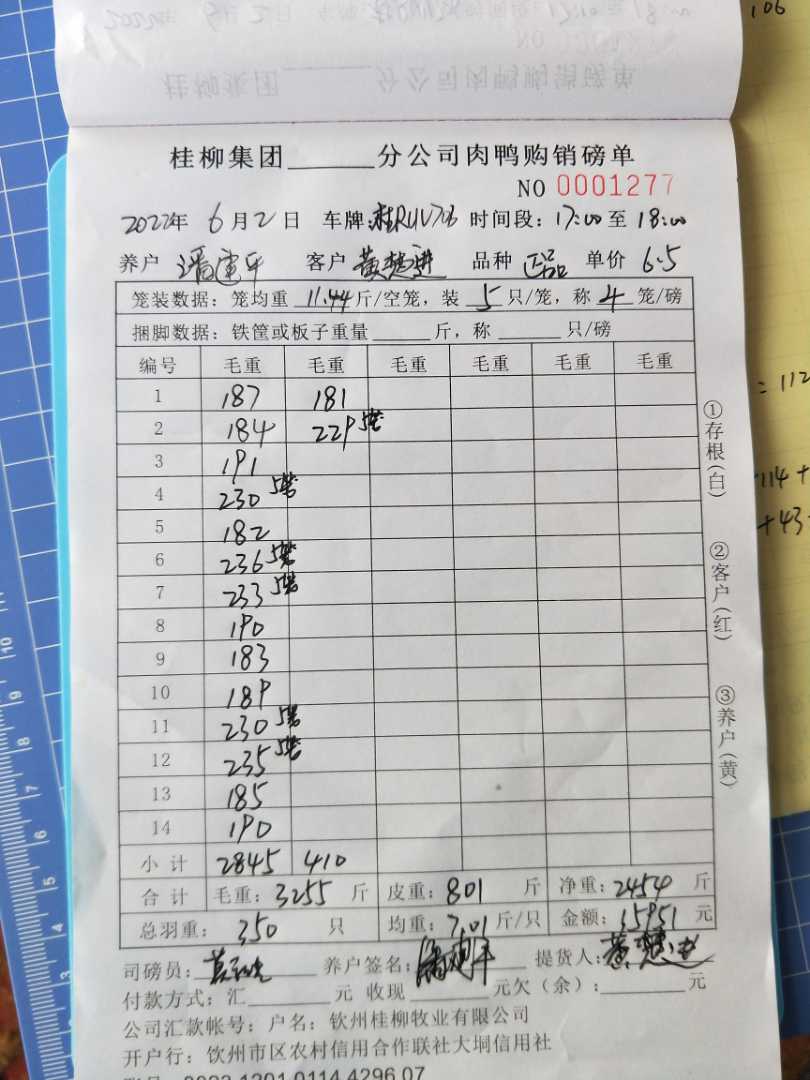 106
桂柳集团______分公司肉鸭购销磅单
NO 0001277
2022年 6月2日 车牌:桂RUV703 时间段:17:00至18:00
养户 潘建平 客户 黄楚进 品种 正品 单价 6.5
笼装数据:笼均重 11.44斤/空笼,装 5 只/笼,称 4 笼/磅
捆脚数据:铁筐或板子重量______斤,称______只/磅
编号 毛重 毛重 毛重 毛重 毛重 毛重
1 187 181
2 184 229 5笼
3 191
4 230 5笼
5 182
6 236 5笼
7 233 5笼
8 190
9 183
10 189
11 230 5笼
12 235 5笼
13 185
14 190
小计 2845 410
合计 毛重:3255 斤 皮重:801 斤 净重:2454 斤
总羽重: 350 只 均重:7.01斤/只 金额:15951元
司磅员: 养户签名:潘建平 提货人:黄楚进
付款方式:汇______元 收现______元欠(余):______元
公司汇款帐号:户名:钦州桂柳牧业有限公司
开户行:钦州市区农村信用合作联社大垌信用社
①存根(白) ②客户(红) ③养户(黄)
= 112
114+
+43